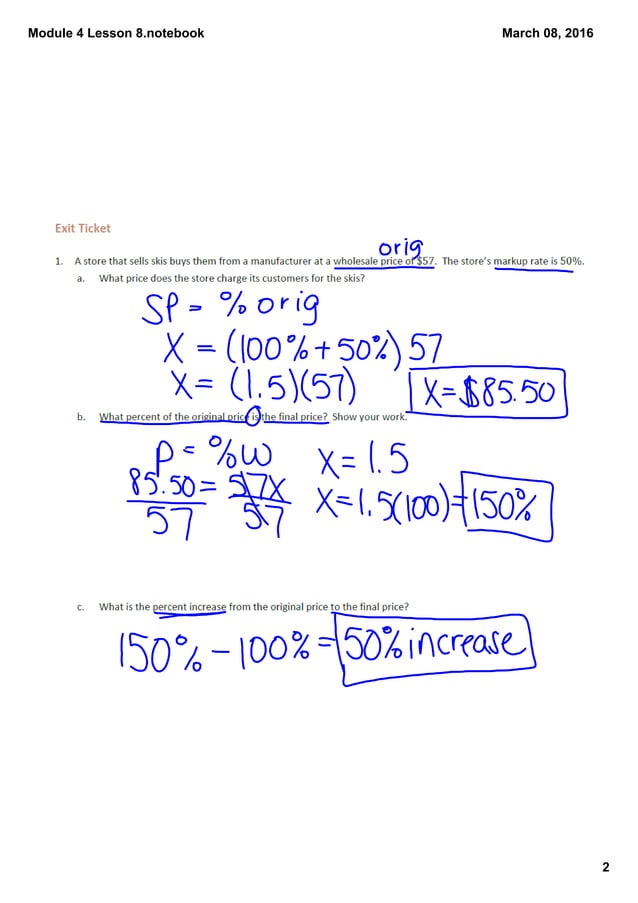 Module 4 Lesson 8.notebook
March 08, 2016
Exit Ticket
orig
1. A store that sells skis buys them from a manufacturer at a wholesale price of $57. The store's markup rate is 50%.
a. What price does the store charge its customers for the skis?
SP = % orig
X = (100% + 50%) 57
X = (1.5)(57)
X = $85.50
b. What percent of the original price is the final price? Show your work.
P = %W
X = 1.5
85.50 = 57X
57 57
X = 1.5(100) = 150%
c. What is the percent increase from the original price to the final price?
150% - 100% = 50% increase
2